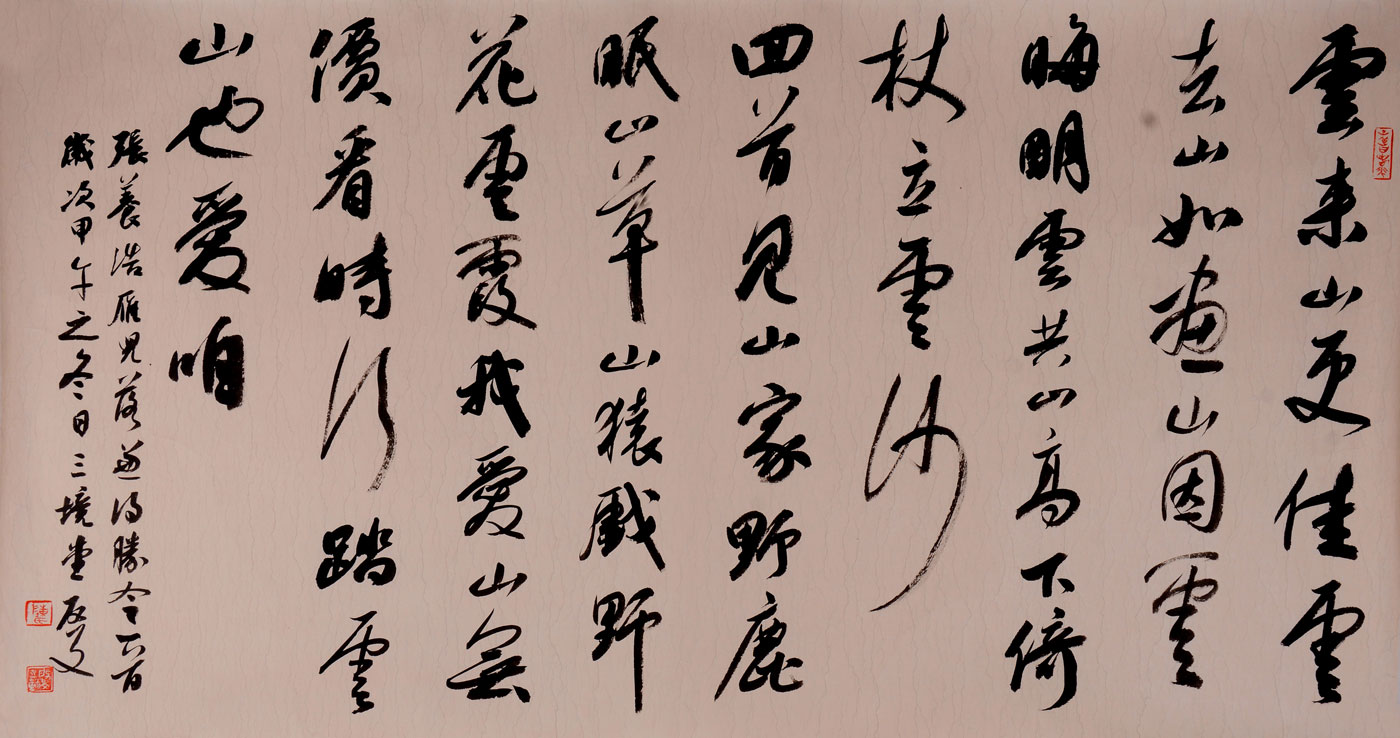 雲来山更佳雲
去山如畫山因雲
晦明雲共山高下倚
杖立雲沙
回首見山家野鹿
眠山草山猿戲野
花雲霞我愛山無
價看時行踏雲
山也愛咱
張養浩雁兒落兼得勝令一首
歲次甲午之冬日三境堂